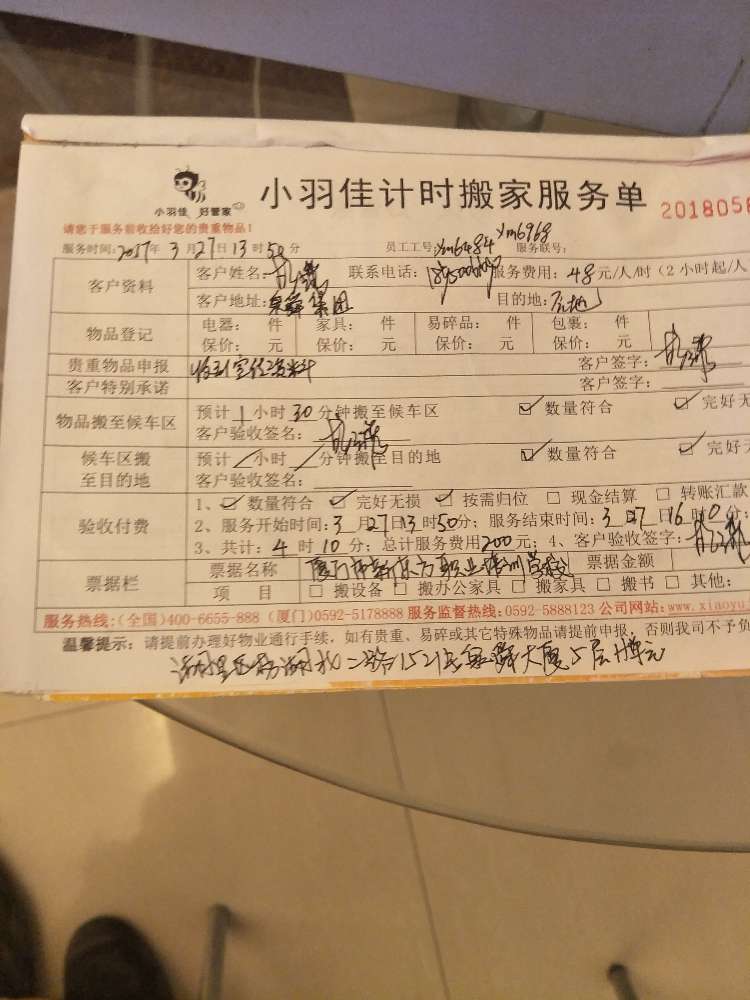 小羽佳 好管家
小羽佳计时搬家服务单
2018056
请您于服务前收拾好您的贵重物品!
服务时间: 2017年 3月27日13时50分 员工工号: xm6484 xm6968 服务联号:
客户资料 客户姓名: 联系电话: 服务费用: 48元/人/时(2小时起/人
客户地址: 集团 目的地: 原地
物品登记 电器: 件 家具: 件 易碎品: 件 包裹: 件
保价: 元 保价: 元 保价: 元 保价: 元
贵重物品申报 客户签字:
客户特别承诺 客户签字:
物品搬至候车区 预计1小时30分钟搬至候车区 ☑ 数量符合 ☑ 完好无
客户验收签名:
候车区搬至目的地 预计 小时 分钟搬至目的地 ☑ 数量符合 ☑ 完好
客户验收签名:
验收付费 1、☑ 数量符合 ☑ 完好无损 ☑ 按需归位 □ 现金结算 □ 转账汇款
2、服务开始时间: 3月27日13时50分; 服务结束时间: 3月27日16时10分;
3、共计: 4时10分; 总计服务费用200元; 4、客户验收签字:
票据栏 票据名称 厦门市新东方职业培训学校 票据金额
项 目 □ 搬设备 □ 搬办公家具 □ 搬家具 □ 搬书 □ 其他:
服务热线:(全国)400-6655-888 (厦门)0592-5178888 服务监督热线:0592-5888123 公司网站:www.xiaoyu
温馨提示: 请提前办理好物业通行手续, 如有贵重、易碎或其它特殊物品请提前申报, 否则我司不予
湖里区枋湖北二路1521号 大厦5层 单元